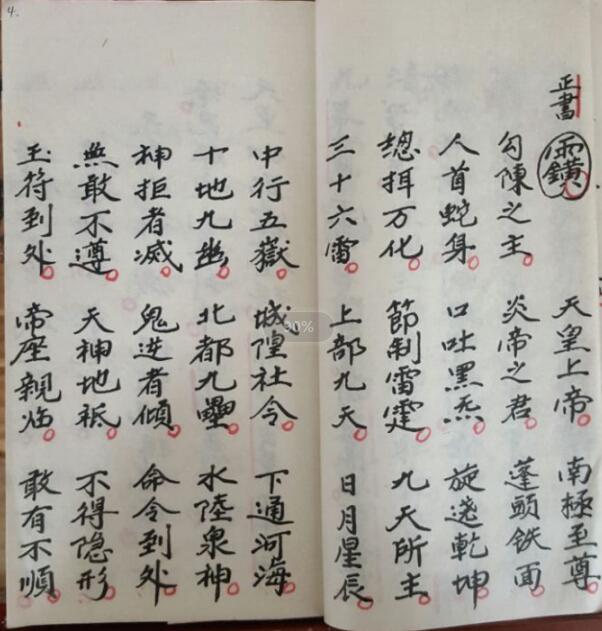 正書 天皇上帝 南極至尊
勾陳之主 炎帝之君 蓬頭鉄面
人首蛇身 口吐黑炁 旋遶乾坤
總挕万化 節制雷霆 九天所主
三十六雷 上部九天 日月星辰
中行五嶽 城隍社令 下通河海
十地九幽 北都九壘 水陸泉神
神拒者滅 鬼进者傾 命令到处
無敢不遵 天神地祇 不得隐形
玉符到处 帝座親临 敢有不順
4.
90%